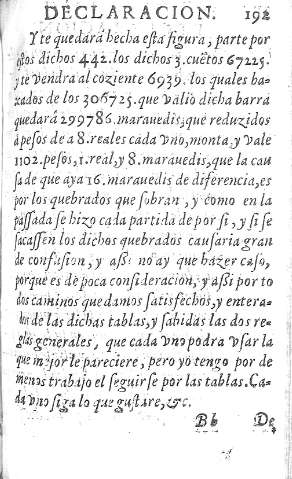 DECLARACION. 192
Y te quedará hecha esta figura, parte por
estos dichos 442. los dichos 3. cuẽtos 67225.
y te vendra al coziente 6939. los quales ba-
xados de los 306725. que valio dicha barra
quedará 299786. marauedis, que reduzidos
à pesos de a 8. reales cada vno, monta, y vale
1102. pesos, 1. real, y 8. marauedis, que la cau
sa de que aya 16. marauedis de diferencia, es
por los quebrados que sobran, y como en la
passada se hizo cada partida de por si, y si se
sacassen los dichos quebrados causaria gran
de confusion, y aßi no ay que hazer caso,
porque es de poca consideracion, y aßi por to
dos caminos que damos satisfechos, y entera-
dos de las dichas tablas, y sabidas las dos re-
glas generales, que cada vno podra vsar la
que mejor le pareciere, pero yo tengo por de
menos trabajo el seguirse por las tablas. Ca-
da vno siga lo que gustare, &c.
Bb De